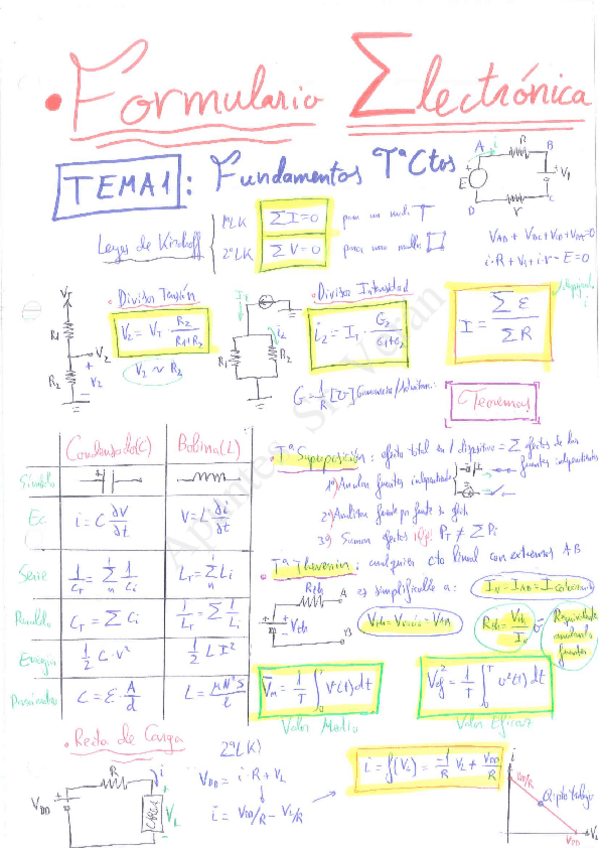 • Formulario Electrónica
TEMA1: Fundamentos Tª Ctos
A i R B
E V₁
D r C
Leyes de Kirchoff
1ªLK ΣI=0 para un nudo
2ªLK ΣV=0 para una malla
V_AB + V_BC + V_CD + V_DA = 0
i·R + V₁ + i·r - E = 0
• Divisor Tensión
V_T R₁ V₂ R₂
V₂ = V_T · R₂/(R₁+R₂)
V₂ ~ R₂
• Divisor Intensidad
I_T i₂ R₁ R₂
i₂ = I_T · G₂/(G₁+G₂)
G = 1/R [℧]
I = Σε/ΣR
Teoremas
Condensador(C) Bobina(L)
Símbolo
Ec i = C ∂V/∂t V = L ∂i/∂t
Serie 1/C_T = Σ 1/Ci L_T = Σ Li
Paralelo C_T = Σ Ci 1/L_T = Σ 1/Li
Energía 1/2 C·V² 1/2 L I²
Parámetros C = ε·A/d L = μN²S/l
• Tª Superposición: efecto total en 1 dispositivo = Σ efectos de las fuentes independientes
1º) Anular fuentes independientes
2º) Analizar fuente por fuente su efecto
3º) Sumar efectos P_T ≠ Σ Pi
• Tª Thevenin: cualquier cto lineal con extremos AB
es simplificable a:
Rth A
Vth B
I_N = I_AB = I cortocircuito
Rth = Vth/I_N
Req vista anulando fuentes
V̄m = 1/T ∫₀ᵀ v(t)dt
Valor Medio
Vef² = 1/T ∫₀ᵀ v²(t)dt
Valor Eficaz
• Recta de Carga
V_DD R i CARGA V_L
2ªLK)
V_DD = i·R + V_L
i = V_DD/R - V_L/R
i = f(V_L) = -1/R V_L + V_DD/R
i V_DD/R
Q: pto trabajo
V_DD V_L
Apuntes S. Veran